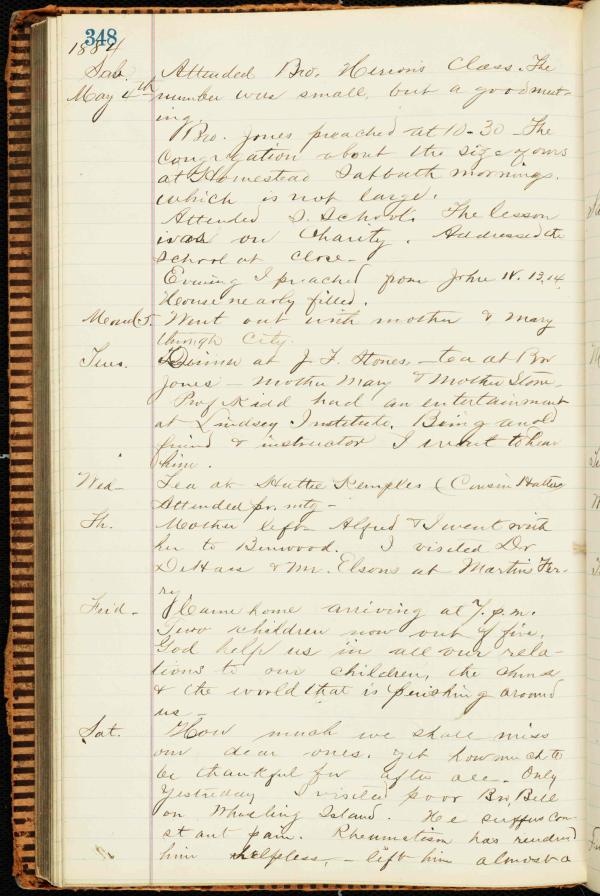 348
1884
Sab. Attended Bro. Herron's Class. The
May 4th number was small, but a good meet-
ing.
Bro. Jones preached at 10-30 - The
Congregation about the size of ours
at Homestead Sabbath mornings.
which is not large.
Attended S. School. The lesson
was on Charity. Addressed the
School at close -
Evening I preached from John 13,14.
House nearly filled.
Mond. 5. Went out with mother & Mary
through City.
Tues. Dinner at J. F. Stones, - tea at Bro
Jones - Mother Mary & Mother Stone,
Prof Kidd had an entertainment
at Lindsey Institute. Being an old
friend & instructor I went to hear
him.
Wed - Tea at Hattie Kemples (Cousin Hattie
Attended pr. mtg -
Th. Mother left - Alfred & I went with
her to Benwood. I visited Dr
DeHass & Mr. Elsons at Martins Fer-
ry.
Frid - Came home arriving at 7. p.m.
Two children now out of five.
God help us in all our rela-
tions to our children, the church
& the world that is perishing around
us -
Sat. How much we shall miss
our dear ones. yet how much to
be thankful for after all. Only
yesterday I visited poor Bro. Bell
on Wheeling Island. He suffers con-
stant pain. Rheumatism has rendered
him helpless, - left him almost a